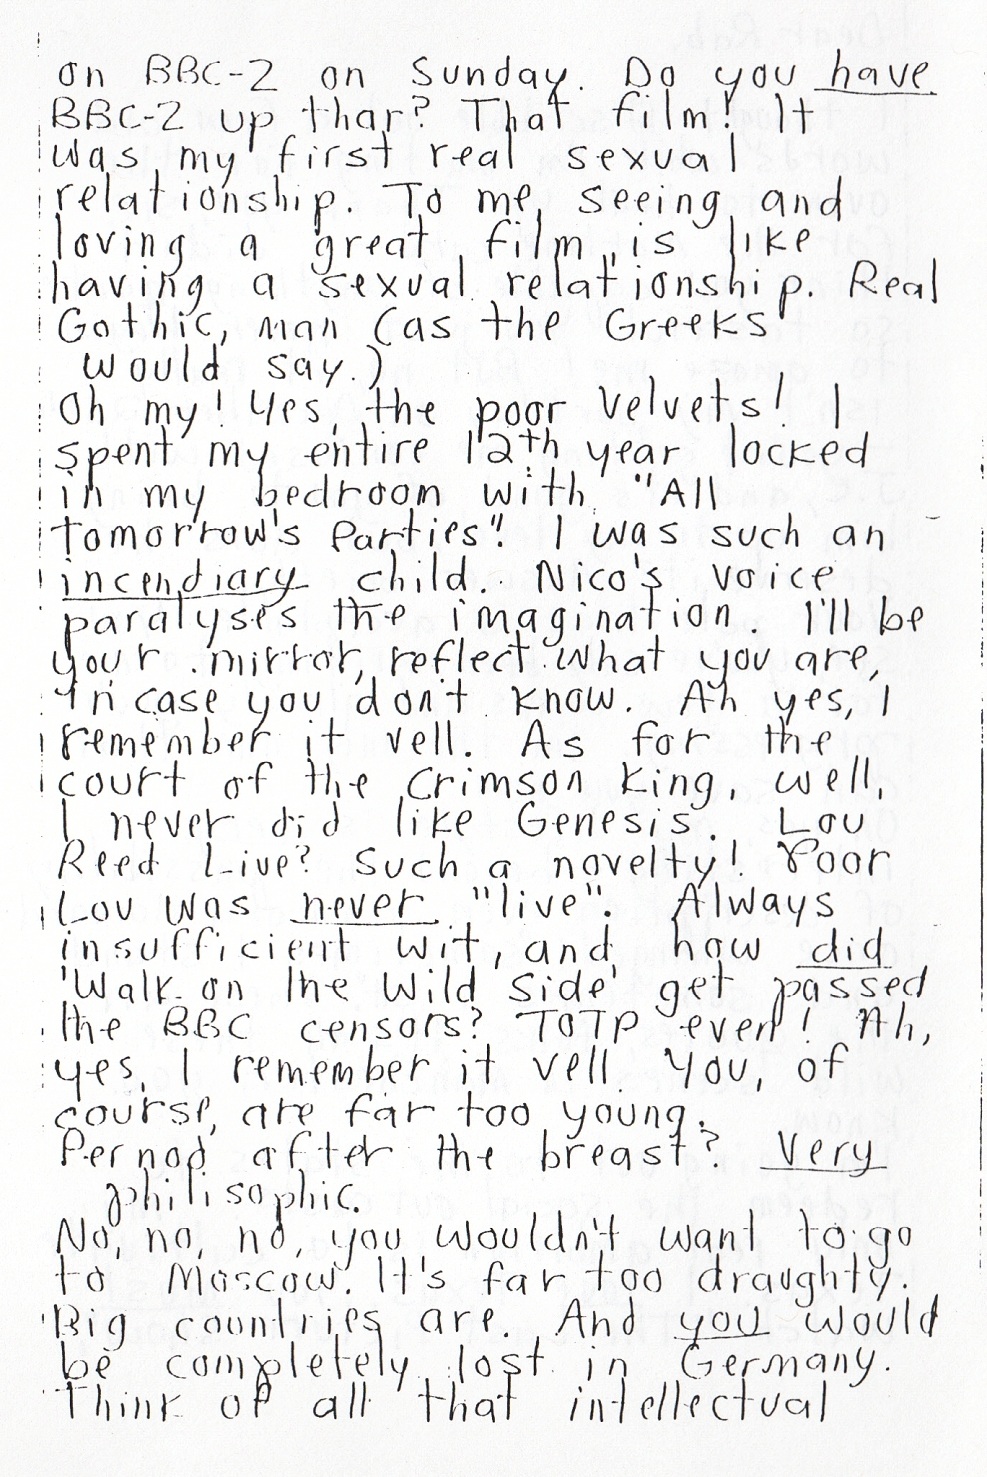 on BBC-2 on Sunday. Do you have
BBC-2 up thar? That film! It
was my first real sexual
relationship. To me, seeing and
loving a great film is like
having a sexual relationship. Real
Gothic, man (as the Greeks
would say.)
Oh my! Yes, the poor Velvets! I
spent my entire 12th year locked
in my bedroom with "All
Tomorrow's Parties". I was such an
incendiary child. Nico's voice
paralyses the imagination. I'll be
your mirror, reflect what you are,
in case you don't know. Ah yes, I
remember it vell. As for the
court of the Crimson King, well,
I never did like Genesis. Lou
Reed Live? Such a novelty! Poor
Lou was never "live". Always
insufficient wit, and how did
'Walk on the Wild Side' get passed
the BBC censors? TOTP even! Ah,
yes, I remember it vell. You, of
course, are far too young.
Pernod after the breast? Very
philisophic.
No, no, no, you wouldn't want to go
to Moscow. It's far too draughty.
Big countries are. And you would
be completely lost in Germany.
Think of all that intellectual